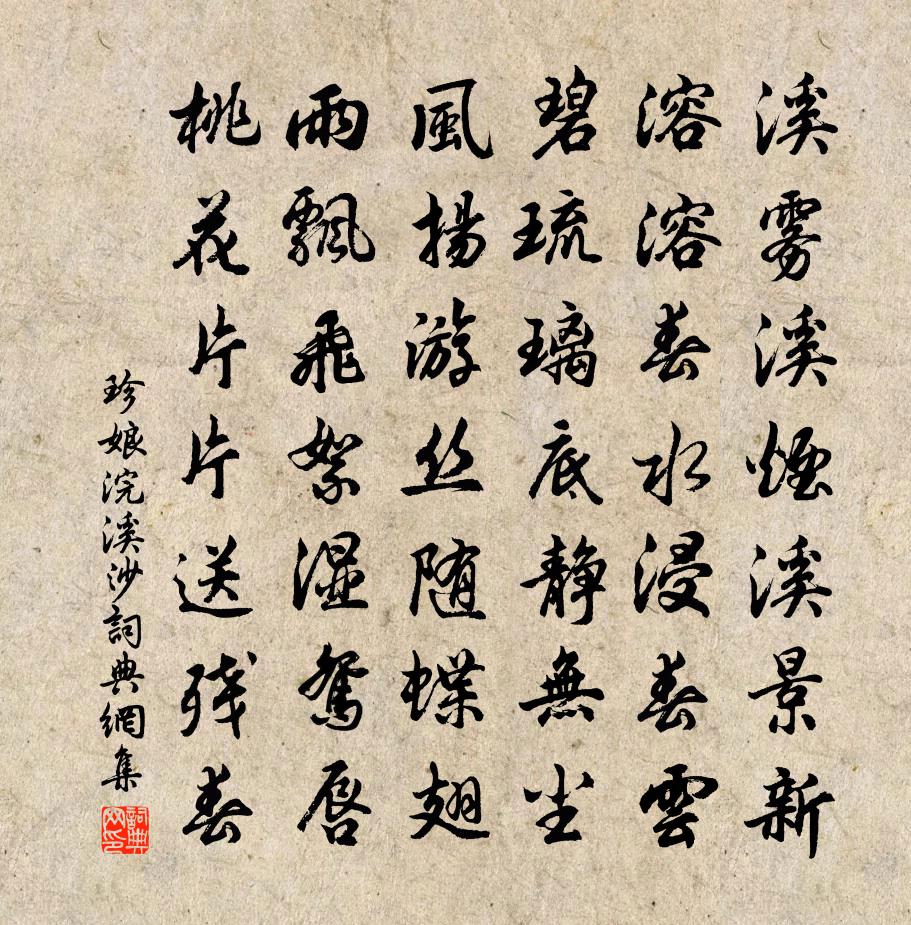 溪雾溪煙溪景新
溶溶春水浸春雲
碧琉璃底静無尘
風揚游丝随蝶翅
雨飄飛絮湿鶯唇
桃花片片送残春
珍娘浣溪沙詞典網集
詞典网印